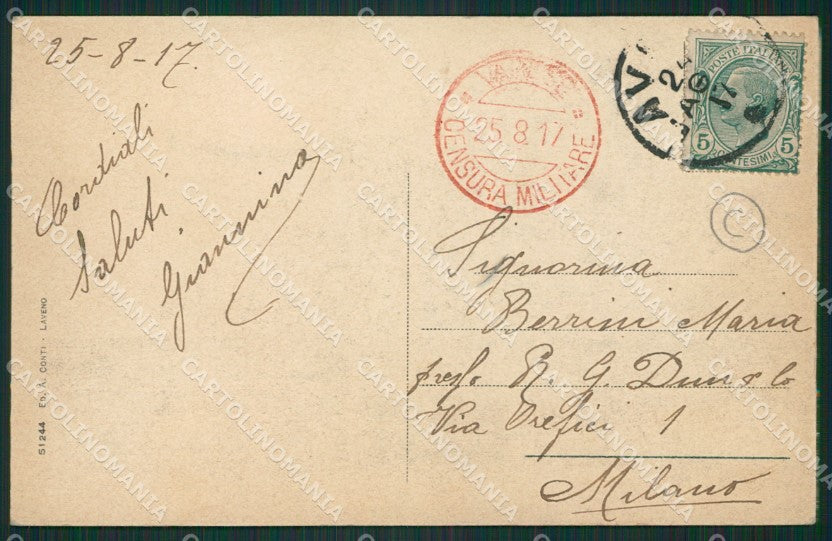 25-8-17.
Cordiali
Saluti
Giannina
51244 ED. A. CONTI - LAVENO
25 8 17
CENSURA MILITARE
POSTE ITALIANE
5 CENTESIMI 5
AG
17
C
Signorina
Berrini Maria
presso R. G. Dun & Co
Via Orefici 1
Milano
CARTOLINOMANIA